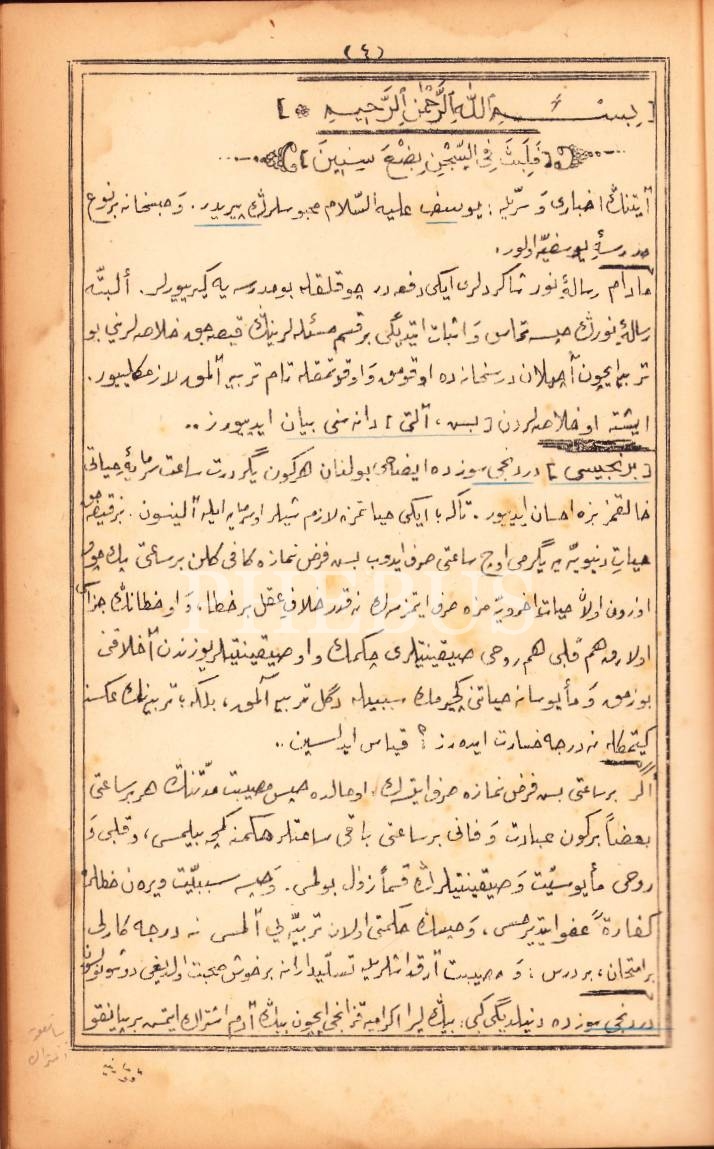 (٤)
[ بِسْــــمِ اللّٰهِ الرَّحْمٰنِ الرَّحِيمِ ]
[ فَلَبِثَ فِى السِّجْنِ بِضْعَ سِنِينَ ]
آيتنڭ اخبارى وَ سرّيله ؛ يوسف عليه السّلام محبوسلرڭ پيريدر. وَ حبسخانه بر نوع
مدرسۀِ يوسفيّه اولور.
مادام رسالۀ نور شاكردلرى ايكى دفعه در چوقلقله بو مدرسه يه كيرييورلر. ألبتّه
رسالۀ نورڭ حبسه تماس وَ اثبات ايتديگى بر قسم مسئله لرينڭ قيصه جق خلاصه لرينى بو
تربيه ايچون آچيلان درسخانه ده اوقومق وَ اوقوتمقله تام تربيه آلمق لازم كلييور.
ايشته او خلاصه لردن [ بش، آلتى ] دانه سنى بيان ايدييورز ..
[ برنجيسى ] دردنجى سوزده ايضاحى بولنان هركون يگرمى درت ساعت سرمايۀِ حياتى
خالقمز بزه احسان ايدييور. تا كه ايكى حياتمزه لازم شيلر او سرمايه ايله آلينسون. بز قيصه جق
حياتِ دنيويّه يه يگرمى اوچ ساعتى صرف ايدوب بش فرض نمازه كافى كلن بر ساعتى پك چوق
اوزون اولان حياتِ اخرويّه مزه صرف ايتمزسه ك نه قدر خلافِ عقل بر خطا، وَ او خطانڭ جزاسى
اولارق هم قلبى هم روحى صيقينتيلرى چكمك وَ او صيقينتيلر يوزندن أخلاقنى
بوزمق وَ مأيوسانه حياتنى كچيرمك سببيله دگل تربيه آلمق، بلكه تربيه نڭ عكسنه
كيتمكله نه درجه خسارت ايده رز ؟ قياس ايدلسين ..
أگر بر ساعتى بش فرض نمازه صرف ايتسه ك، او حالده حبس مصيبت مدّتنڭ هر بر ساعتى
بعضاً بر كون عبادت وَ فانى بر ساعتى باقى ساعتلر حكمنه كچه بيلمسى، وَ قلبى وَ
روحى مأيوسيّت وَ صيقينتيلرڭ قسماً زوال بولمسى. وَ حبسه سببيّت ويره ن خطالره
كفارةً عفو ايتديرمسى، وَ حبسڭ حكمتى اولان تربيّه يى آلمسى نه درجه كارلى
بر امتحان، بر درس ؛ وَ مصيبت آرقداشلريله تسلّيدارانه بر خوش صحبت اولديغى دوشونولسون
دردنجى سوزده دنيلديگى كبى؛ بيڭ ليرا اكراميه قزانجى ايچون بيڭ آدم اشتراك ايتمش بر پيانقو